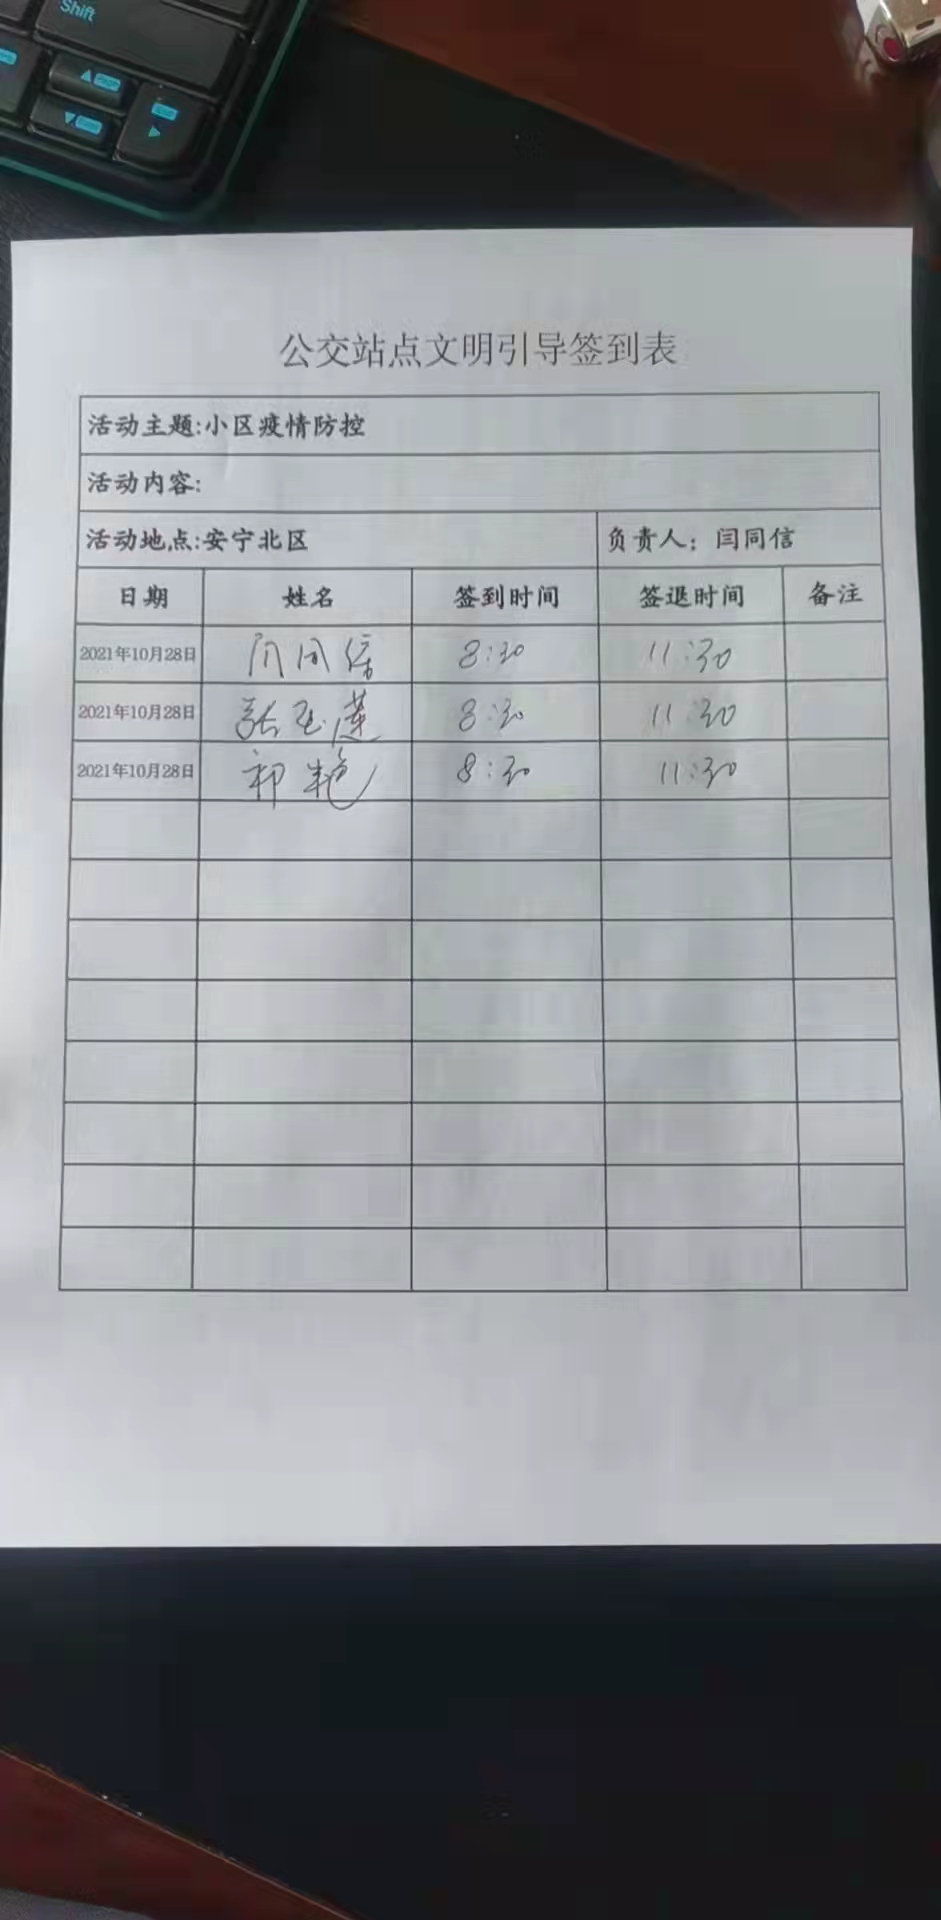 Shift
公交站点文明引导签到表
活动主题:小区疫情防控
活动内容:
活动地点:安宁北区 负责人：闫同信
日期 姓名 签到时间 签退时间 备注
2021年10月28日 闫同信 8:30 11:30
2021年10月28日 张玉莲 8:30 11:30
2021年10月28日 祁艳 8:30 11:30